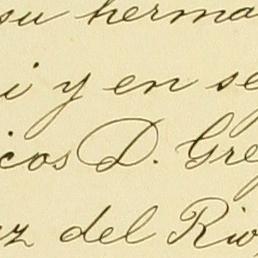 su herma
i y en se
icos D. Gre
ez del Rio,